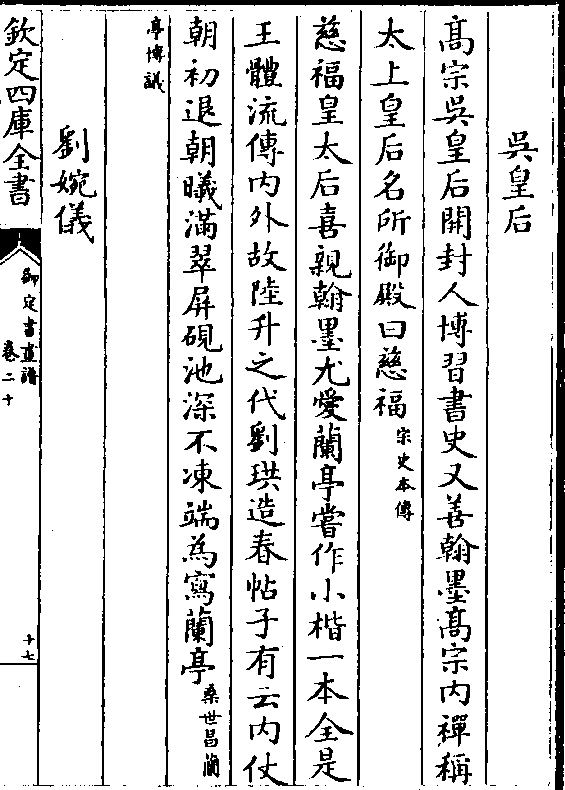 吳皇后
髙宗吳皇后開封人博習書史又善翰墨髙宗内禪稱
太上皇后名所御殿曰慈福宋史本傳
慈福皇太后喜親翰墨尤愛蘭亭嘗作小楷一本全是
王體流傳内外故陸升之代劉珙造春帖子有云内仗
朝初退朝曦滿翠屏硯池深不凍端為寫蘭亭桑世昌蘭
亭博議
劉婉儀
欽定四庫全書
御定書畫譜
卷二十
十七